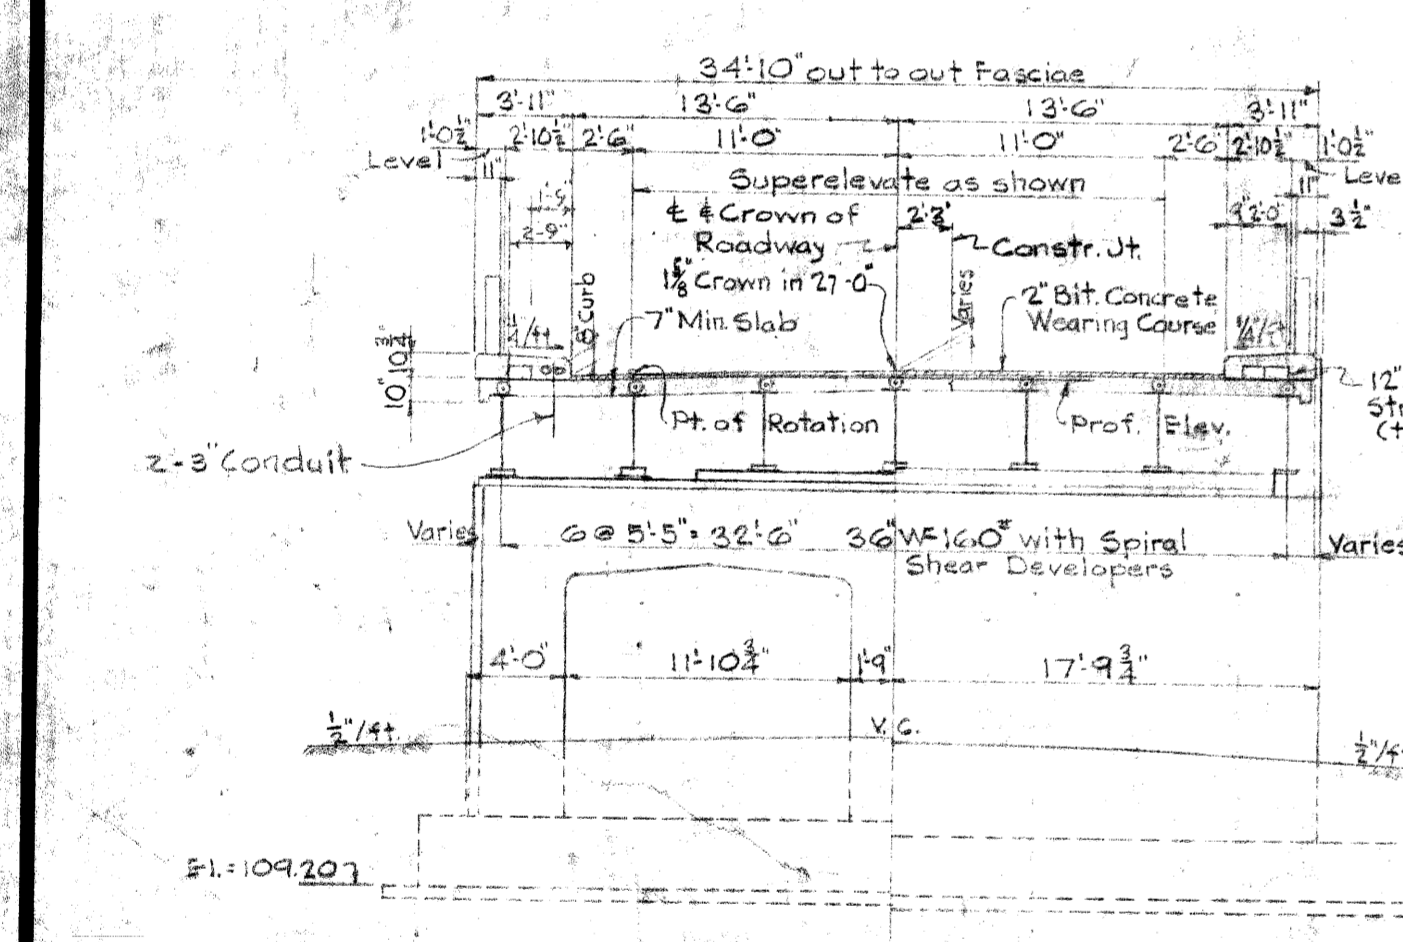 34'-10" out to out Fasciae
3'-11" 13'-6" 13'-6" 3'-11"
1'-0½" 2'-10½" 2'-6" 11'-0" 11'-0" 2'-6" 2'-10½" 1'-0½"
Level Leve
11" 11"
Superelevate as shown
2'-9" 2'-3" 9" 2'-0" 3½"
℄ & Crown of
Roadway
Constr. Jt.
1⅝" Crown in 27'-0"
8" Curb
Varies
2" Bit. Concrete
Wearing Course
¼"/ft ¼"/ft
7" Min. Slab
10¾"
10"
12"
Str
(t
Pt. of Rotation
Prof. Elev.
2-3" Conduit
Varies 6 @ 5'-5" = 32'-6" 36" WF 160# with Spiral
Shear Developers
Varies
4'-0" 11'-10¾" 1'-9" 17'-9¾"
½"/ft. V. C. ½"/f
El. = 109.207